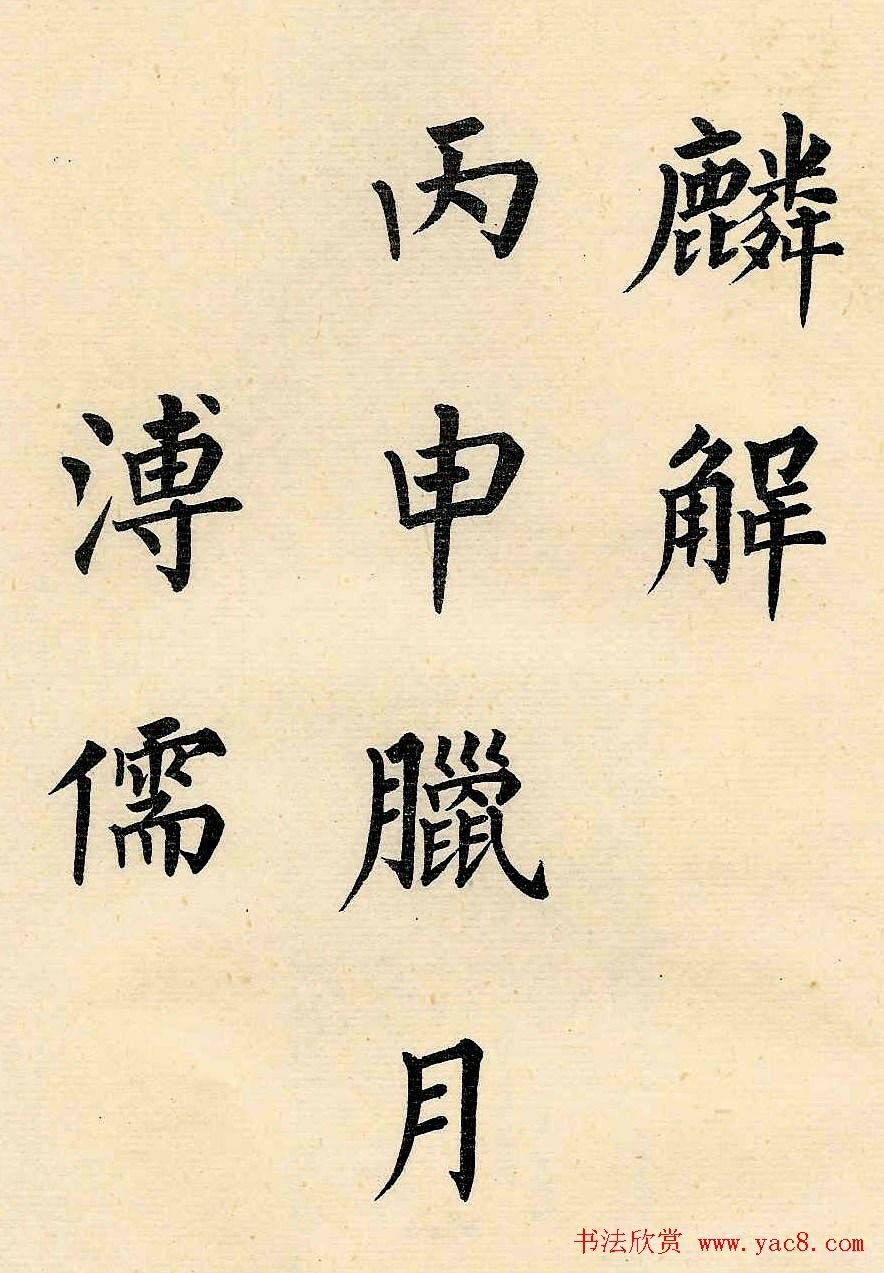 麟解
丙申臘月
溥儒
书法欣赏 www.yac8.com